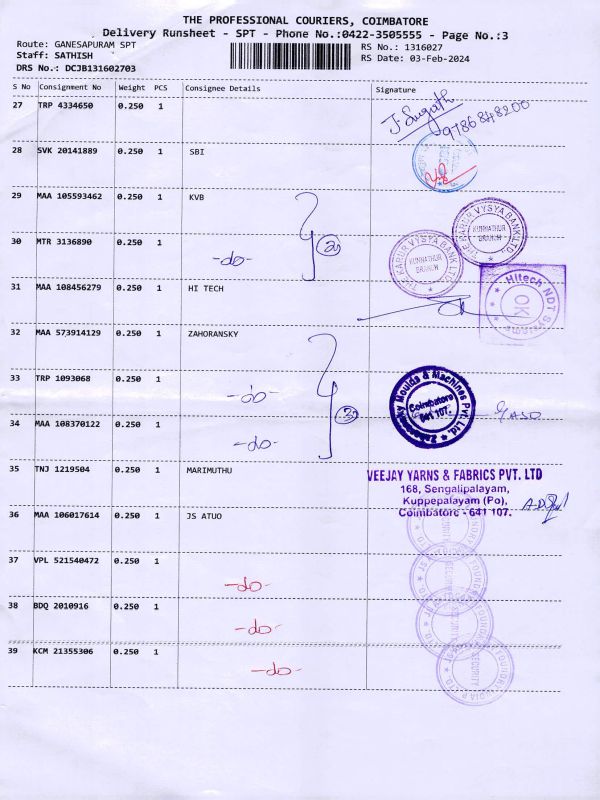 THE PROFESSIONAL COURIERS, COIMBATORE
Delivery Runsheet - SPT - Phone No.:0422-3505555 - Page No.:3
Route: GANESAPURAM SPT
Staff: SATHISH
DRS No.: DCJB131602703
RS No.: 1316027
RS Date: 03-Feb-2024
S No Consignment No Weight PCS Consignee Details Signature
27 TRP 4334650 0.250 1
9786848200
28 SVK 20141889 0.250 1 SBI
29 MAA 105593462 0.250 1 KVB
THE KARUR VYSYA BANK LTD
KUNNATHUR
BRANCH
30 MTR 3136890 0.250 1 -do- 2
THE KARUR VYSYA BANK LTD
KUNNATHUR
BRANCH
31 MAA 108456279 0.250 1 HI TECH
Hitech NDT Systems
OK
32 MAA 573914129 0.250 1 ZAHORANSKY
33 TRP 1093068 0.250 1 -do- 3
Zahoransky Moulds & Machines Pvt. Ltd.
Coimbatore
641 107.
34 MAA 108370122 0.250 1 -do-
35 TNJ 1219504 0.250 1 MARIMUTHU
VEEJAY YARNS & FABRICS PVT. LTD
168, Sengalipalayam,
Kuppepalayam (Po),
Coimbatore - 641 107.
36 MAA 106017614 0.250 1 JS ATUO
37 VPL 521540472 0.250 1 -do-
SECURITY
38 BDQ 2010916 0.250 1 -do-
SECURITY
39 KCM 21355306 0.250 1 -do-
SECURITY